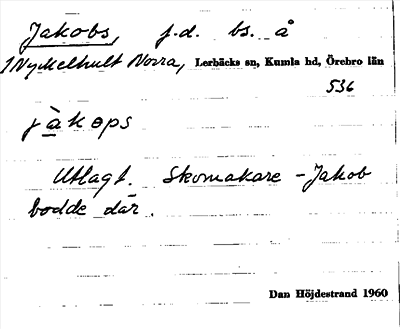 Jakobs, f.d. bs. å
1 Nyckelhult Norra, Lerbäcks sn, Kumla hd, Örebro län
536
jàkɵps
Utlagt. Skomakare-Jakob
bodde där.
Dan Höjdestrand 1960